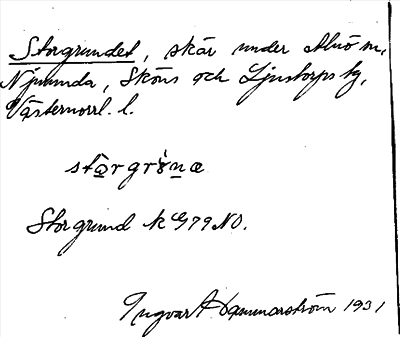 Storgrundet, skär under Alnö m,
Njurunda, Sköns och Ljustorps tg,
Västernorrl. l.
stǫ̀rgrɤ̀n̲æ
Storgrund k G79 NO.
Ingvar Hammarström 1931